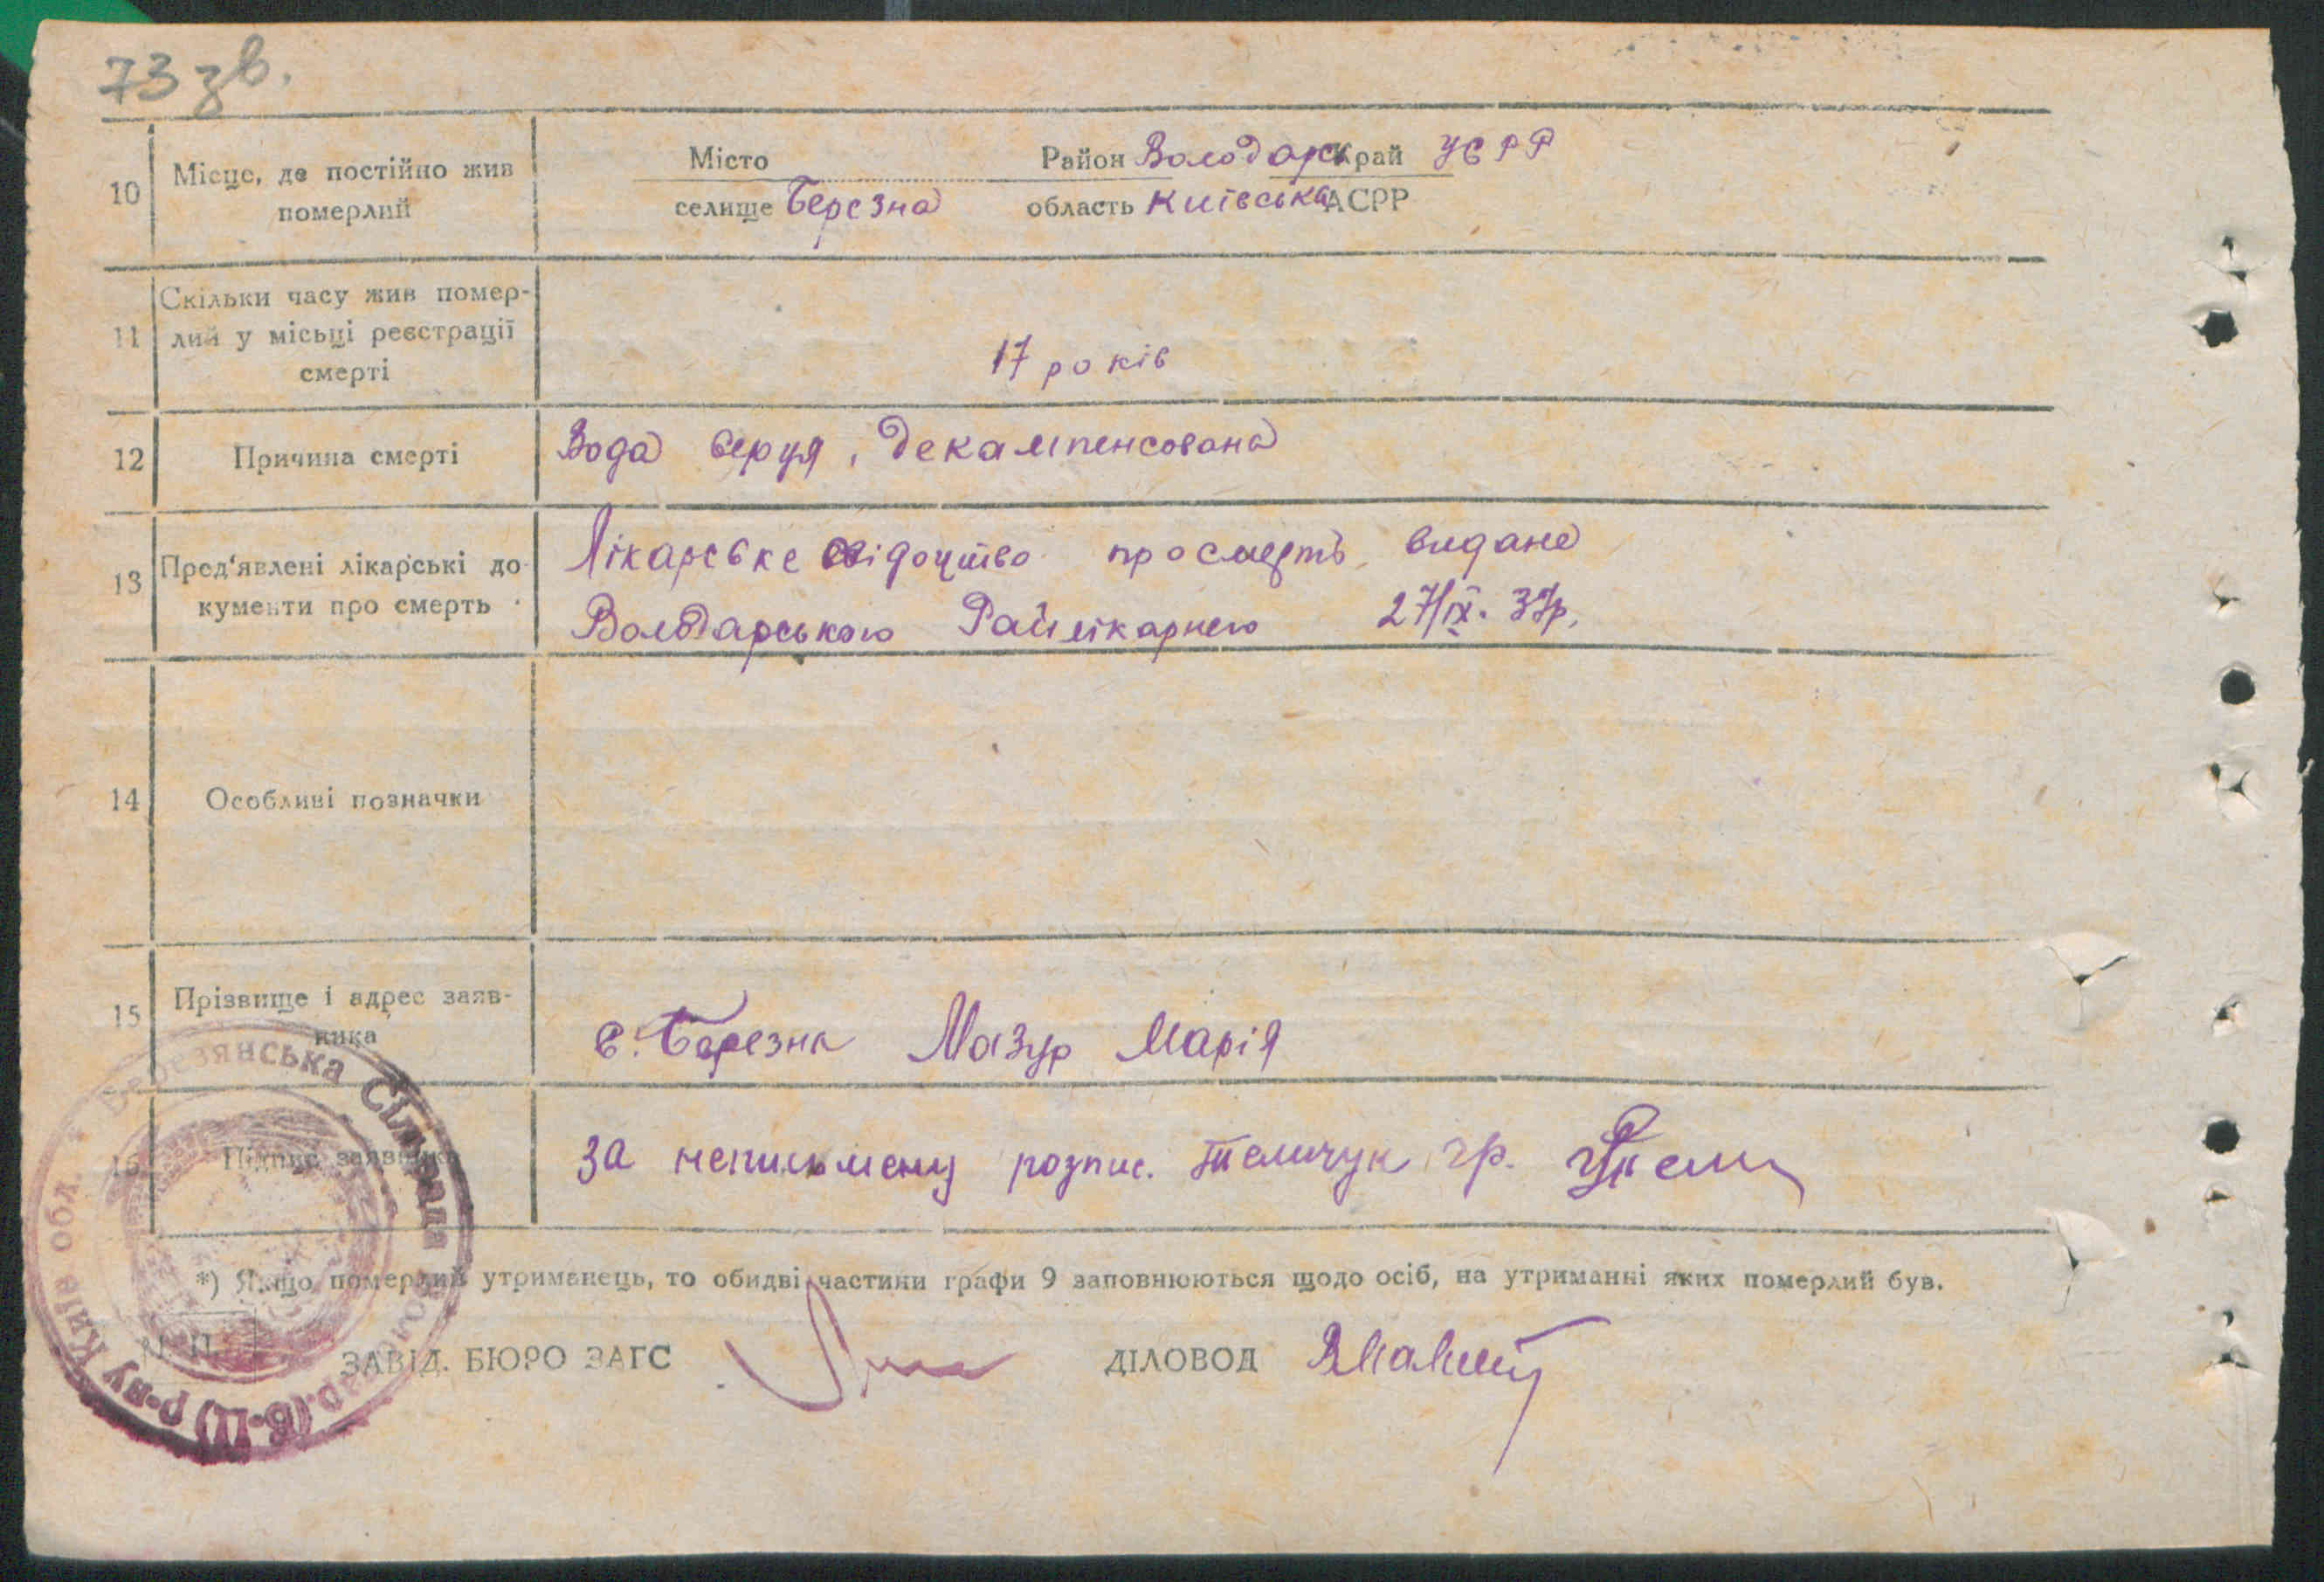 73 зв.
10 Місце, де постійно жив померлий
Місто Район Володарс край УСРР
селище Березна область Київська АСРР
11 Скільки часу жив помер-
лий у місьці реєстрації
смерті
17 років
12 Причина смерті Вода серця, декампенсована
13 Пред'явлені лікарські до-
кументи про смерть
Лікарське свідоцтво про смерть видане
Володарською Райлікарнею 27/IX. 37р.
14 Особливі позначки
15 Прізвище і адрес заяв-
ника
с. Березна Мазур Марія
16 Підпис заявника За неписьмену розпис. Теличук гр.
*) Якщо померлий утриманець, то обидві частини графи 9 заповнюються щодо осіб, на утриманні яких померлий був.
М. П. ЗАВІД. БЮРО ЗАГС ДІЛОВОД
Березянська Сільрада Володар.(Б-Ц) р-ну Київ обл.